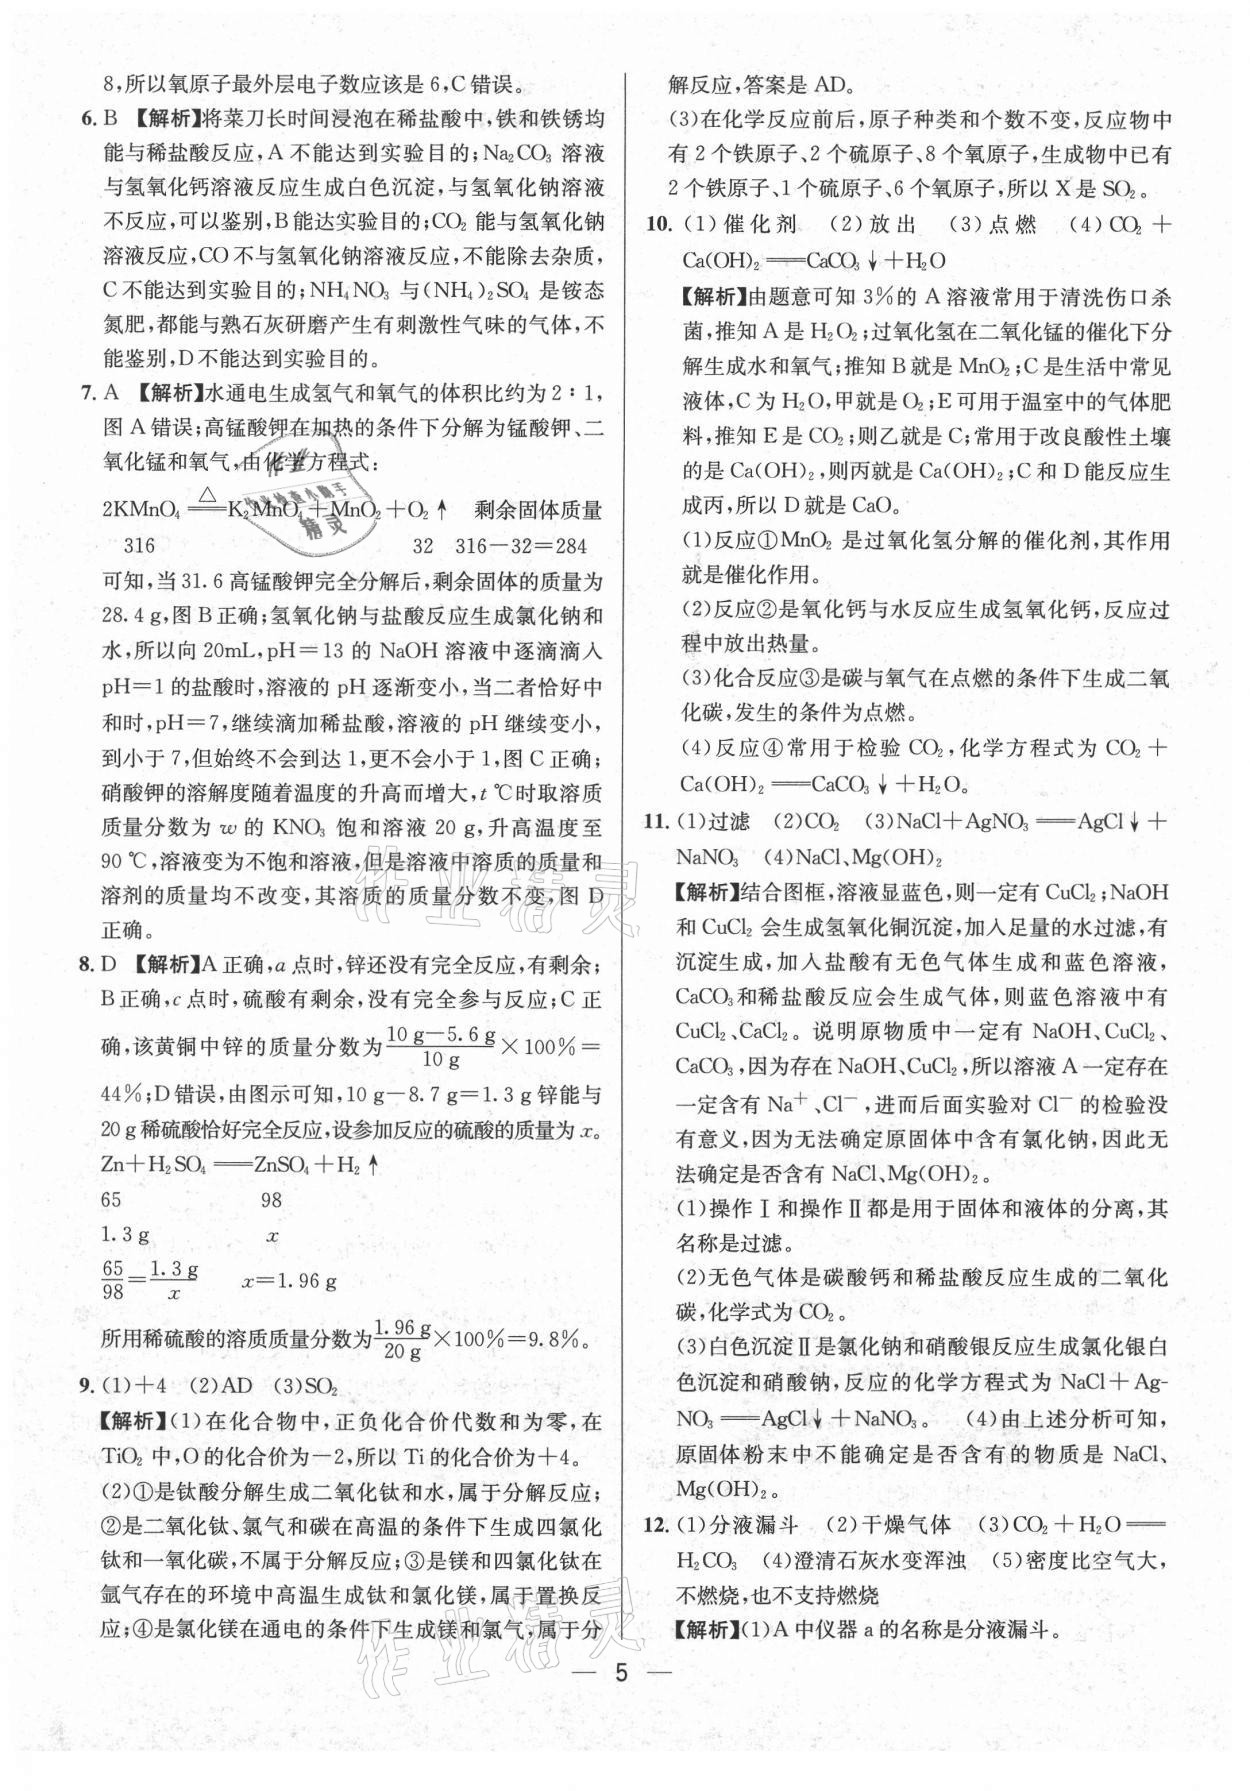 8,所以氧原子最外层电子数应该是6,C错误。
6. B 【解析】将菜刀长时间浸泡在稀盐酸中,铁和铁锈均
能与稀盐酸反应,A不能达到实验目的;Na₂CO₃ 溶液
与氢氧化钙溶液反应生成白色沉淀,与氢氧化钠溶液
不反应,可以鉴别,B能达实验目的;CO₂ 能与氢氧化钠
溶液反应,CO不与氢氧化钠溶液反应,不能除去杂质,
C不能达到实验目的;NH₄NO₃ 与(NH₄)₂SO₄ 是铵态
氮肥,都能与熟石灰研磨产生有刺激性气味的气体,不
能鉴别,D不能达到实验目的。
7. A 【解析】水通电生成氢气和氧气的体积比约为2∶1,
图A错误;高锰酸钾在加热的条件下分解为锰酸钾、二
氧化锰和氧气,由化学方程式:
2KMnO₄ ══△══ K₂MnO₄+MnO₂+O₂↑ 剩余固体质量
316 32 316-32=284
可知,当31.6高锰酸钾完全分解后,剩余固体的质量为
28.4g,图B正确;氢氧化钠与盐酸反应生成氯化钠和
水,所以向20mL,pH=13的NaOH溶液中逐滴滴入
pH=1的盐酸时,溶液的pH逐渐变小,当二者恰好中
和时,pH=7,继续滴加稀盐酸,溶液的pH继续变小,
到小于7,但始终不会到达1,更不会小于1,图C正确;
硝酸钾的溶解度随着温度的升高而增大,t ℃时取溶质
质量分数为 w 的 KNO₃ 饱和溶液 20 g,升高温度至
90 ℃,溶液变为不饱和溶液,但是溶液中溶质的质量和
溶剂的质量均不改变,其溶质的质量分数不变,图 D
正确。
8. D 【解析】A正确,a点时,锌还没有完全反应,有剩余;
B正确,c点时,硫酸有剩余,没有完全参与反应;C正
确,该黄铜中锌的质量分数为(10 g-5.6 g)/10 g×100%=
44%;D错误,由图示可知,10 g-8.7 g=1.3 g锌能与
20 g稀硫酸恰好完全反应,设参加反应的硫酸的质量为 x。
Zn+H₂SO₄══ZnSO₄+H₂↑
65 98
1.3 g x
65/98=1.3 g/x x=1.96 g
所用稀硫酸的溶质质量分数为1.96 g/20 g×100%=9.8%。
9. (1)+4 (2)AD (3)SO₂
【解析】(1)在化合物中,正负化合价代数和为零,在
TiO₂ 中,O的化合价为-2,所以Ti的化合价为+4。
(2)①是钛酸分解生成二氧化钛和水,属于分解反应;
②是二氧化钛、氯气和碳在高温的条件下生成四氯化
钛和一氧化碳,不属于分解反应;③是镁和四氯化钛在
氩气存在的环境中高温生成钛和氯化镁,属于置换反
应;④是氯化镁在通电的条件下生成镁和氯气,属于分
解反应,答案是AD。
(3)在化学反应前后,原子种类和个数不变,反应物中
有2个铁原子、2个硫原子、8个氧原子,生成物中已有
2个铁原子、1个硫原子、6个氧原子,所以X是SO₂。
10. (1)催化剂 (2)放出 (3)点燃 (4)CO₂+
Ca(OH)₂══CaCO₃↓+H₂O
【解析】由题意可知3%的A溶液常用于清洗伤口杀
菌,推知A是H₂O₂;过氧化氢在二氧化锰的催化下分
解生成水和氧气;推知B就是MnO₂;C是生活中常见
液体,C为H₂O,甲就是O₂;E可用于温室中的气体肥
料,推知E是CO₂;则乙就是C;常用于改良酸性土壤
的是Ca(OH)₂,则丙就是Ca(OH)₂;C和D能反应生
成丙,所以D就是CaO。
(1)反应①MnO₂ 是过氧化氢分解的催化剂,其作用
就是催化作用。
(2)反应②是氧化钙与水反应生成氢氧化钙,反应过
程中放出热量。
(3)化合反应③是碳与氧气在点燃的条件下生成二氧
化碳,发生的条件为点燃。
(4)反应④常用于检验CO₂,化学方程式为CO₂+
Ca(OH)₂══CaCO₃↓+H₂O。
11. (1)过滤 (2)CO₂ (3)NaCl+AgNO₃══AgCl↓+
NaNO₃ (4)NaCl、Mg(OH)₂
【解析】结合图框,溶液显蓝色,则一定有CuCl₂;NaOH
和CuCl₂ 会生成氢氧化铜沉淀,加入足量的水过滤,有
沉淀生成,加入盐酸有无色气体生成和蓝色溶液,
CaCO₃和稀盐酸反应会生成气体,则蓝色溶液中有
CuCl₂、CaCl₂。说明原物质中一定有NaOH、CuCl₂、
CaCO₃,因为存在NaOH、CuCl₂,所以溶液A一定存在
一定含有 Na⁺、Cl⁻,进而后面实验对 Cl⁻ 的检验没
有意义,因为无法确定原固体中含有氯化钠,因此无
法确定是否含有NaCl、Mg(OH)₂。
(1)操作Ⅰ和操作Ⅱ都是用于固体和液体的分离,其
名称是过滤。
(2)无色气体是碳酸钙和稀盐酸反应生成的二氧化
碳,化学式为CO₂。
(3)白色沉淀Ⅱ是氯化钠和硝酸银反应生成氯化银白
色沉淀和硝酸钠,反应的化学方程式为NaCl+Ag-
NO₃══AgCl↓+NaNO₃。 (4)由上述分析可知,
原固体粉末中不能确定是否含有的物质是NaCl、
Mg(OH)₂。
12. (1)分液漏斗 (2)干燥气体 (3)CO₂+H₂O══
H₂CO₃ (4)澄清石灰水变浑浊 (5)密度比空气大,
不燃烧,也不支持燃烧
【解析】(1)A中仪器a的名称是分液漏斗。
— 5 —
作业
作业检查小助手
精灵
作业精灵
作业精灵